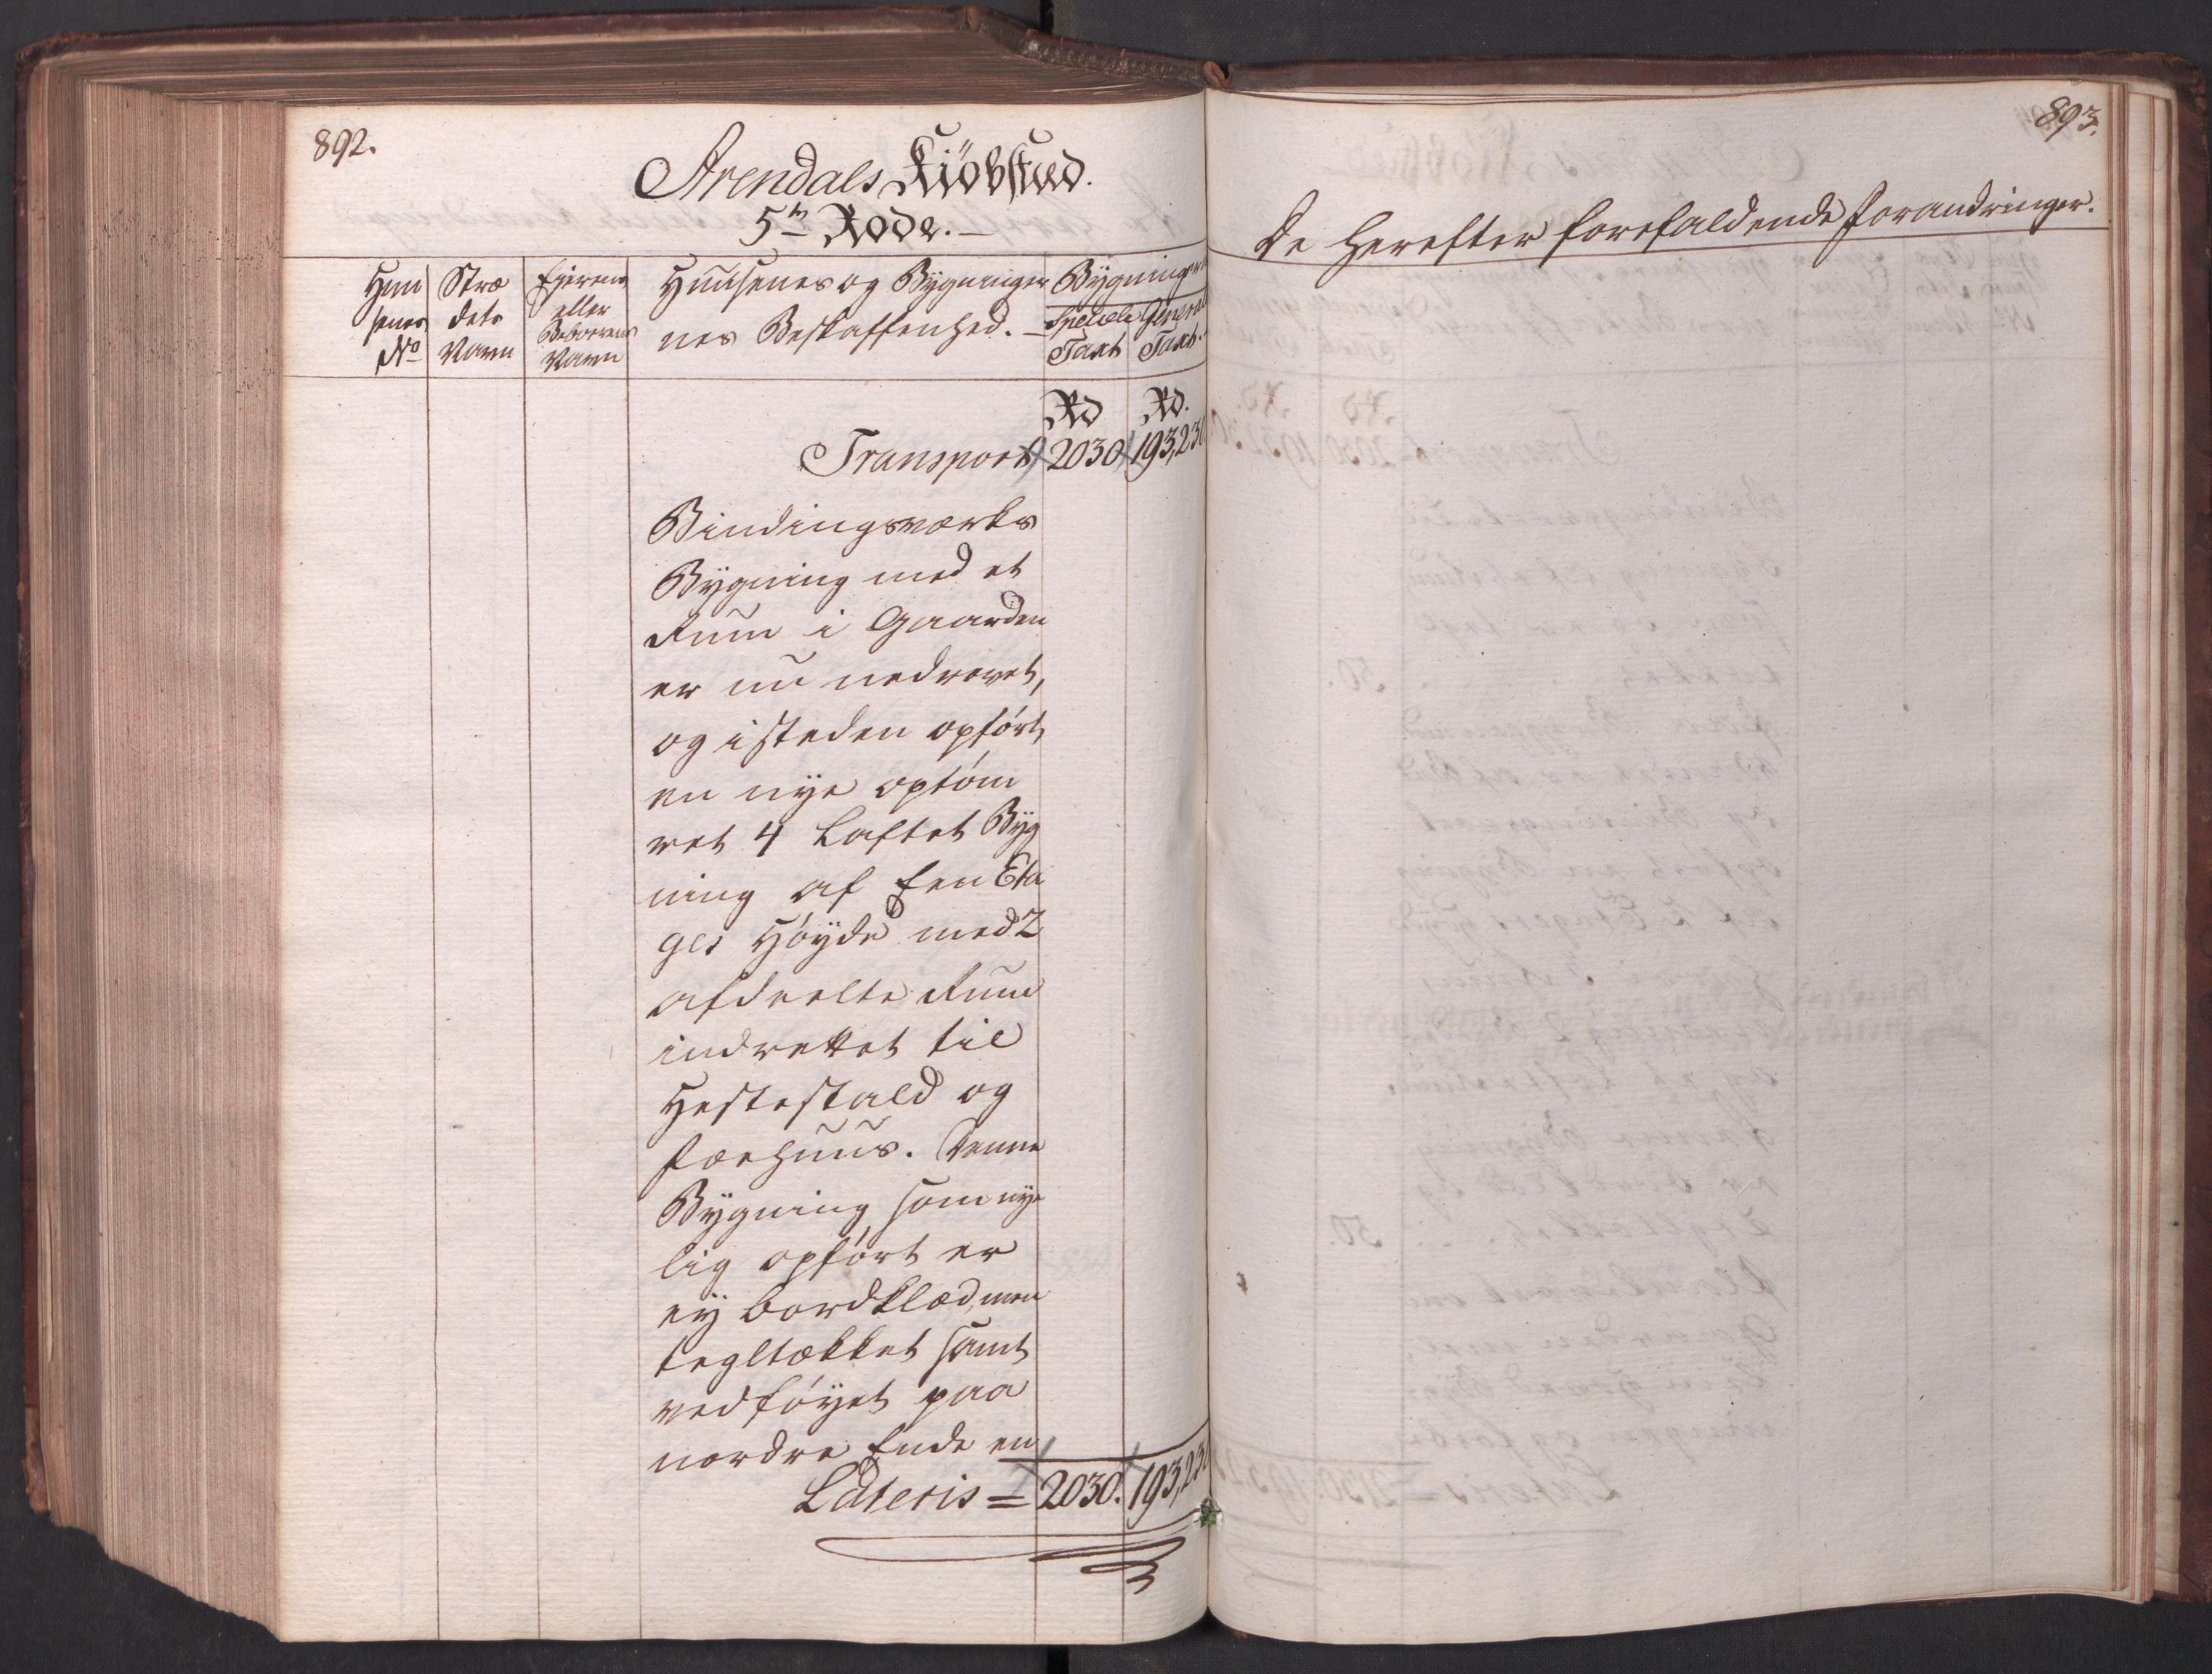 892.
Arendals Kiöbstæd.
5te Rode.
Huu
senes
No
Stræ
dets
Navn
Ejerens
eller
Beboerens
Navn
Huusenes og Bygninger
nes Beskaffenhed.
Bygninger
Speciele
Taxt
General
Taxt.
Rd Rd.
Transport 2030 193,230
Bindingsværks
Bygning med et
Rum i Gaarden
er nu nedrevet,
og isteden opført,
en nye optøm
ret 4 Laftet Byg
ning af Een Eta
ges Høyde med 2
afdeelte Rum
indrettet til
Hestestald og
Foehuus. Denne
Bygning, som nye
lig opført er
ey bordklæd, men
tegltækket samt
vedføyet paa
nordre Ende en
Lateris = 2030. 193,230
893.
De herefter forefaldende Forandringer.